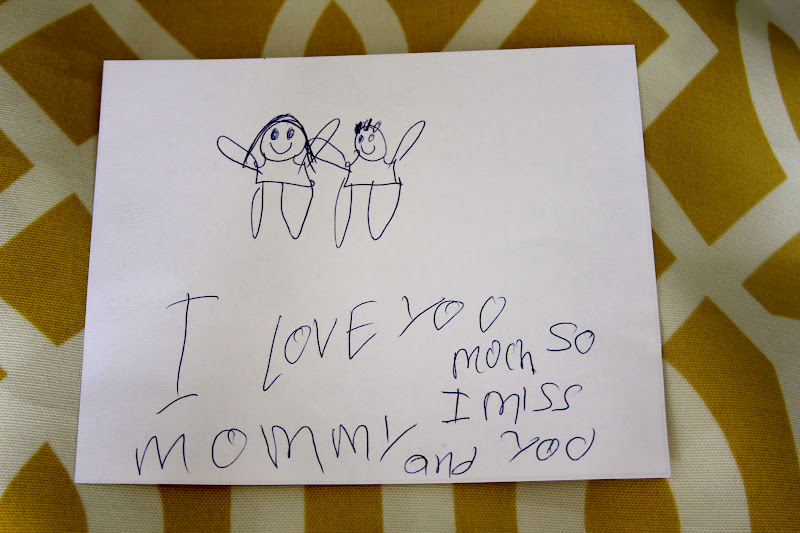 I LOVE YOO
moch SO
I MISS
MOMMY and YOO